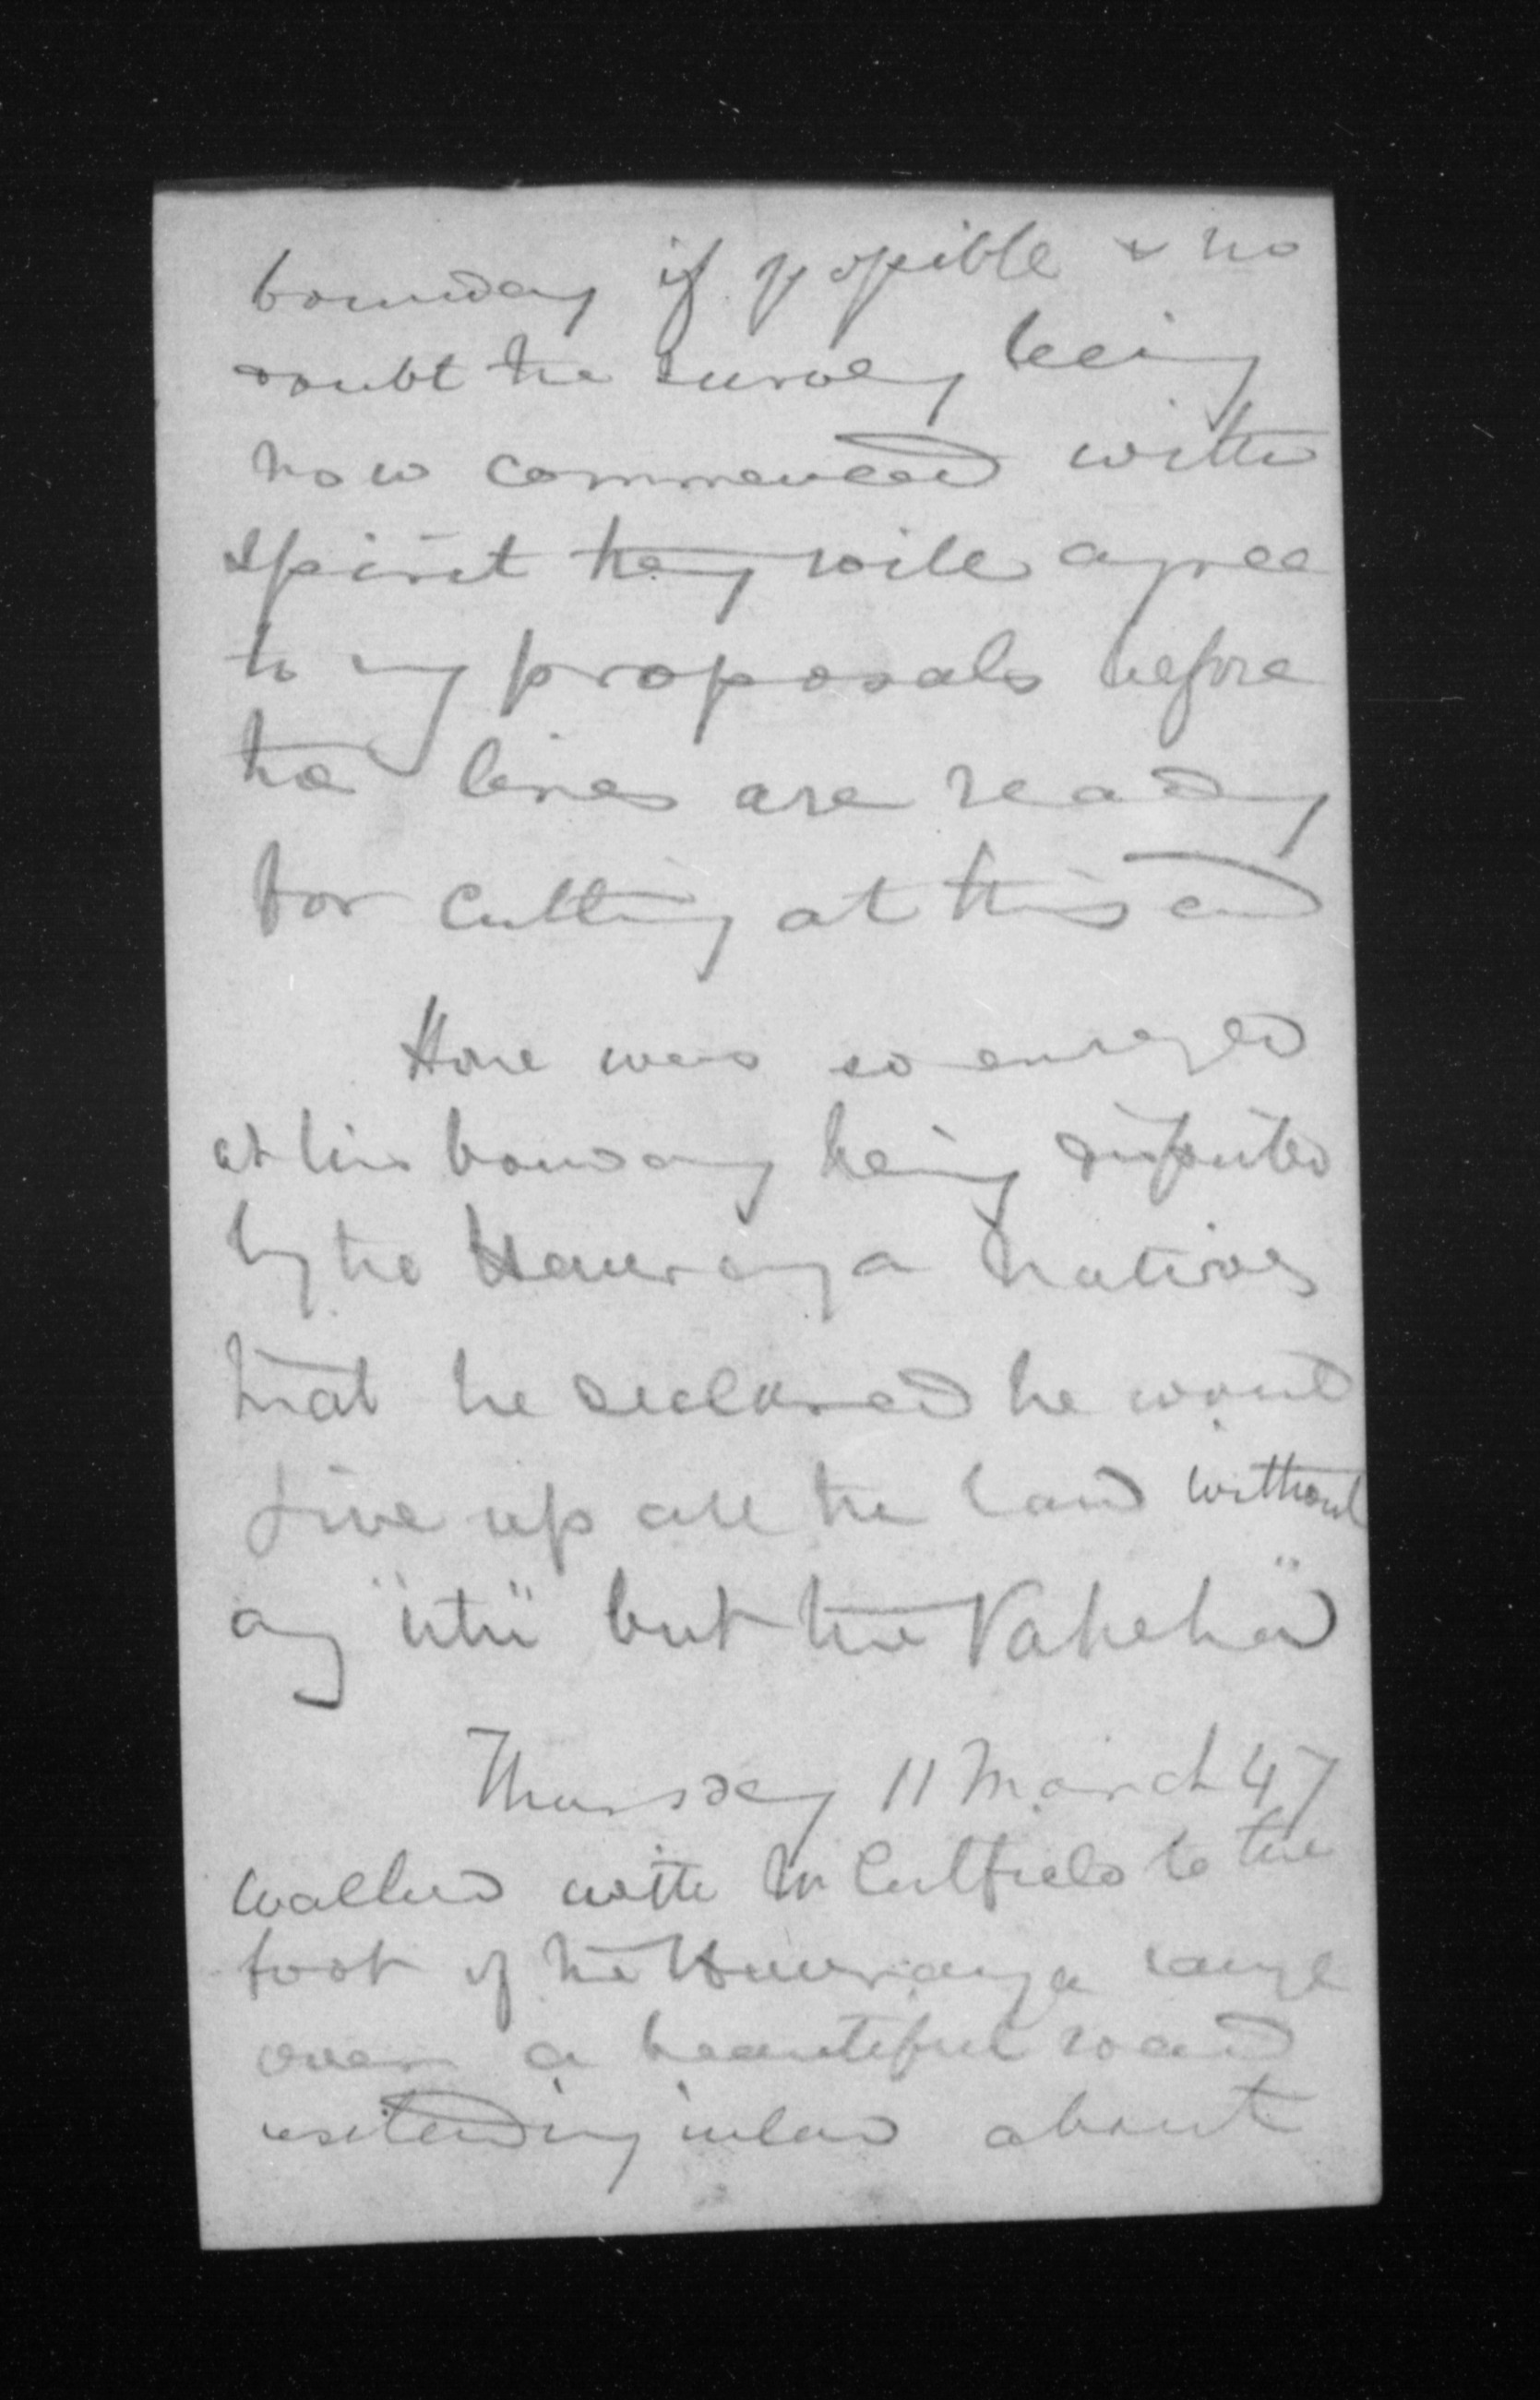 boundary if possible & no
doubt the survey being
now commenced with
spirit they will agree
to my proposals before
the lines are ready
for cutting at this end
Hone was so enraged
at his boundary being disputed
by the Hauranga natives
that he declared he would
give up all the land without
any "utu" but the Pakeha"
Thursday 11 March 47
Walked with Mr Cutfield to the
foot of the Hauranga range
over a beautiful road
extending inland about